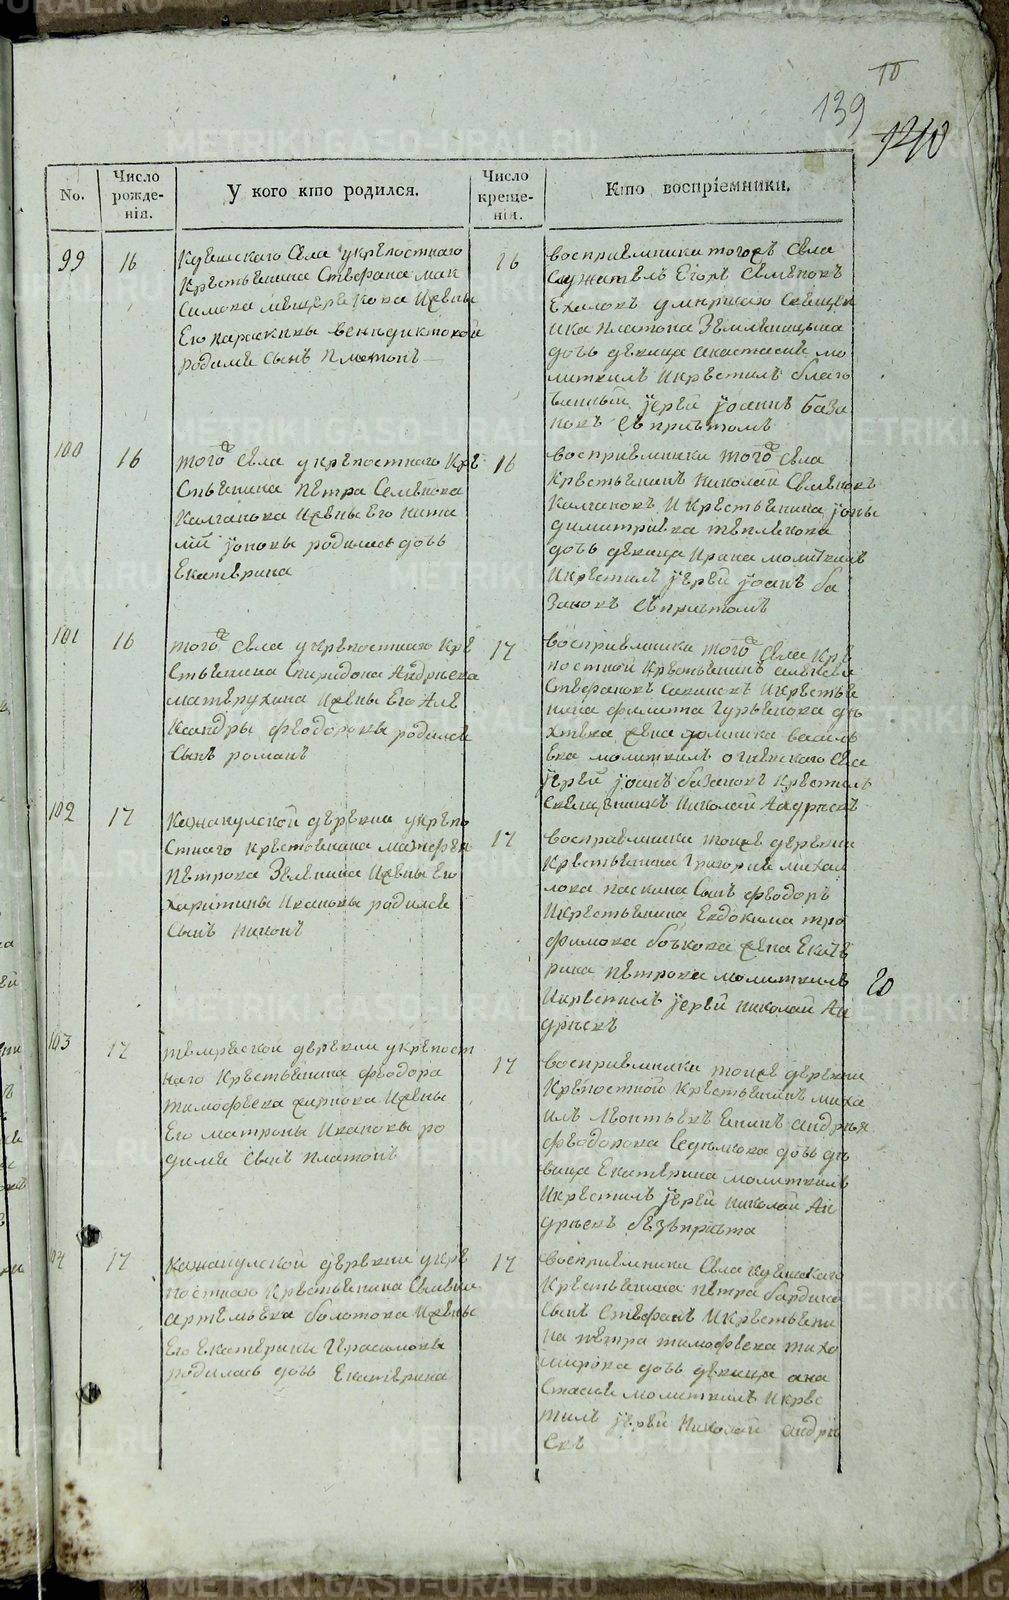 10
139
1240
No.
Число рожде-нія.
У кого кто родился.
Число креще-нія.
Кто воспріемники.
99
16
Куяшскаго Села укрепостнаго
Крестьянина Стефана Мак
симова мещерекова ижены
Его параскивы венидиктовой
родился Сынъ Платонъ
16
восприемники тогожъ Села
Служитель Егоръ Семеновъ
умершаго Священ
ика Платона Земленицына
дочь девица анастасия мо
литвилъ Икрестилъ благо
чинный Iерей Iоаннъ База
новъ Спричтомъ
100
16
тогожъ Села укрепостнаго Кре
стьянина Петра Семенова
Калганова Ижены Его Ната
лии Iоновы родилась дочь
Екатерина
16
восприемники тогожъ Села
Крестьянинъ Николай Семеновъ
Калгановъ И Крестьянина Iоны
димитриева теплякова
дочь девица Ирина молитвилъ
Икрестилъ Iерей Iоанъ ба
зановъ Спричтомъ
101
16
тогожъ Села укрепостнаго Кре
стьянина Спиридона Андреева
матерухина Ижены Его Але
ксандры феодоровы родился
Сынъ романъ
17
восприемники тогожъ Села Кре
постной Крестьянинъ алексей
Стефановъ Икрестья
нина филипа Гурьянова
жена домника василь
ева молитвилъ огневскаго Села
Iерей Iоанъ базановъ Крестилъ
Священникъ Николай Андреевъ
102
17
Кажакулской деревни укрепо
стнаго Крестьянина матфея
Петрова Зеленина Ижены Его
харитины Ивановы родился
Сынъ Никонъ
17
восприемники тоежъ деревни
Крестьянина Григория михаи
лова паскина Сынъ феодоръ
Икрестьянина Евдокима тро
фимова бочкова жена Екате
рина петрова молитвилъ
Икрестилъ Iерей Николай Ан
дреевъ
20
103
17
деревни укрепост
наго Крестьянина феодора
тимофеева Ижены
Его матроны Ивановы ро
дился Сынъ Платонъ
17
восприемники тоежъ деревни
Крепостной Крестьянинъ миха
илъ Леонтьевъ андрея
феодорова Седьмова дочь де
вица Екатерина молитвилъ
Икрестилъ Iерей Николай Ан
дреевъ безъпричта
104
17
Кажакулской деревни укре
постнаго Крестьянина
артемьева болотова Ижены
Его Екатерины Герасимовы
родилась дочь Екатерина
17
восприемники Села Куяшскаго
Крестьянина петра бардина
Сынъ Стефанъ Икрестьяни
на петра тимофеева тихо
мирова дочь девица ана
стасия молитвилъ Икрес
тилъ Iерей Николай андре
евъ
METRIKI.GASO-URAL.RU